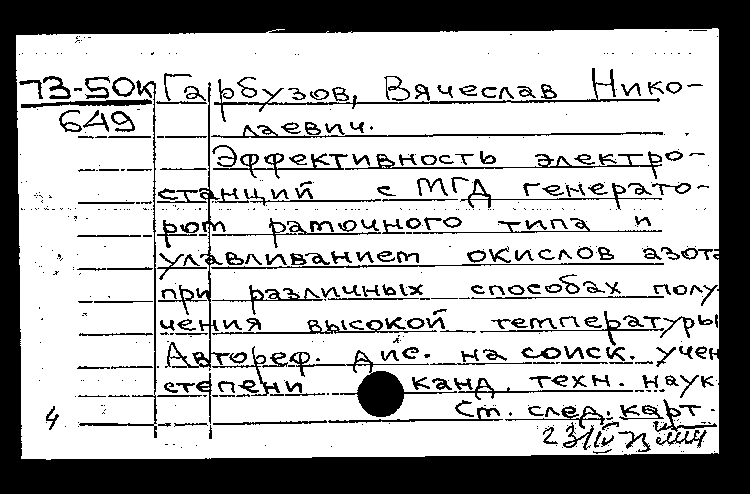 73-50к Гарбузов, Вячеслав Нико-
649 лаевич.
Эффективность электро-
станций с МГД генерато-
ром рамочного типа и
улавливанием окислов азота
при различных способах полу-
чения высокой температуры
Автореф. дис. на соиск. учен
степени канд. техн. наук.
Ст. след. карт.
4
23/IV-73